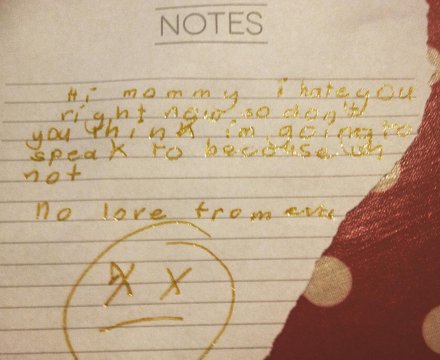 NOTES
Hi mommy i hate you
right now so don't
you think im going to
speak to becouse im
not
no love from